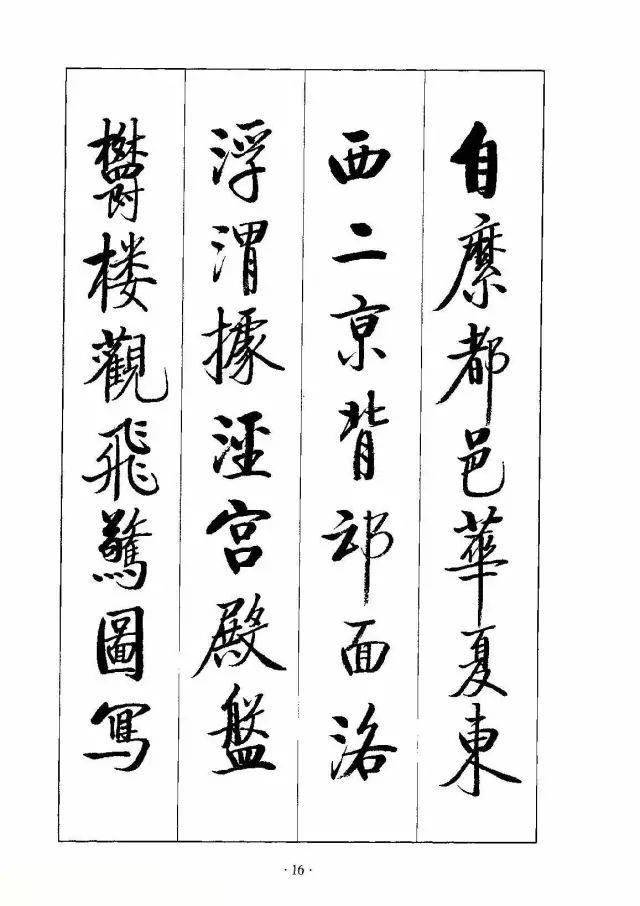 自縻都邑華夏東
西二京背邙面洛
浮渭據涇宮殿盤
欝楼觀飛驚圖寫
· 16 ·